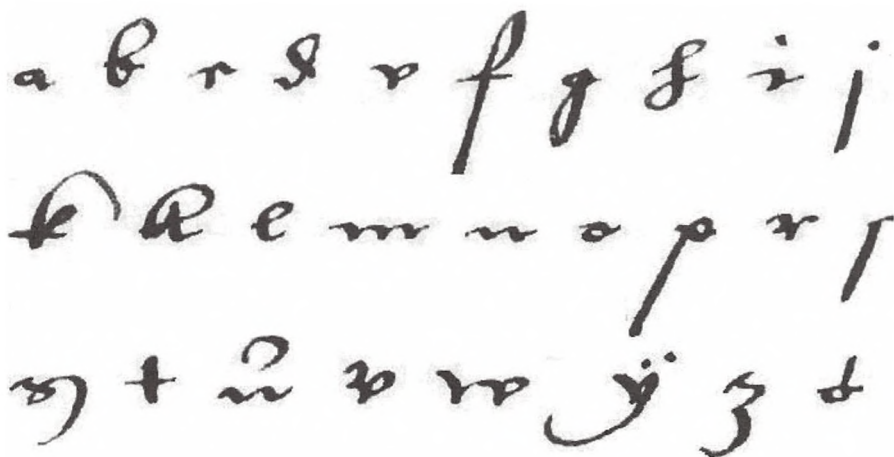 a b c d e f g h i j
k k l m n o p r ſ
s t û v w ÿ z d